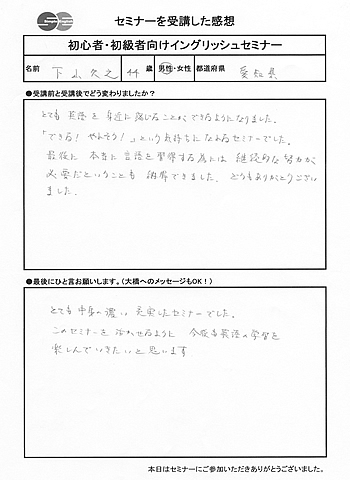 セミナーを受講した感想
初心者・初級者向けイングリッシュセミナー
名前 下山久之 44 歳 男性・女性 都道府県 愛知県
●受講前と受講後でどう変わりましたか？
とても 英語を 身近に 感じることができるようになりました。
「できる！ やれそう！」という気持ちになれるセミナーでした。
最後に 本当に 言語を 習得する為には 継続的な努力が
必要だということも 納得できました。 どうもありがとうござい
ました。
●最後にひと言お願いします。（大橋へのメッセージもOK！）
とても 中身の濃い 充実したセミナーでした。
このセミナーを 活かせるように 今後も英語の学習を
楽しんでいきたいと思います
本日はセミナーにご参加いただきありがとうございました。